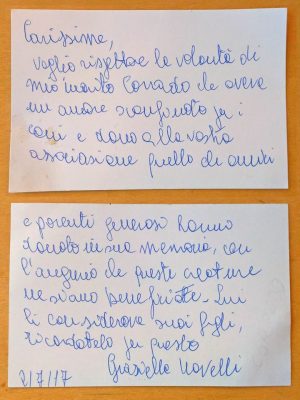 Carissime,
voglio rispettare le volontà di
mio marito Corrado che aveva
un amore sconfinato per i
cani e dono alla vostra
associazione quello che amici
e parenti generosi hanno
donato in sua memoria, con
l'augurio che queste creature
ne siano beneficiate. Lui
li considerava suoi figli,
ricordatelo per questo
Graziella Novelli
2/7/17